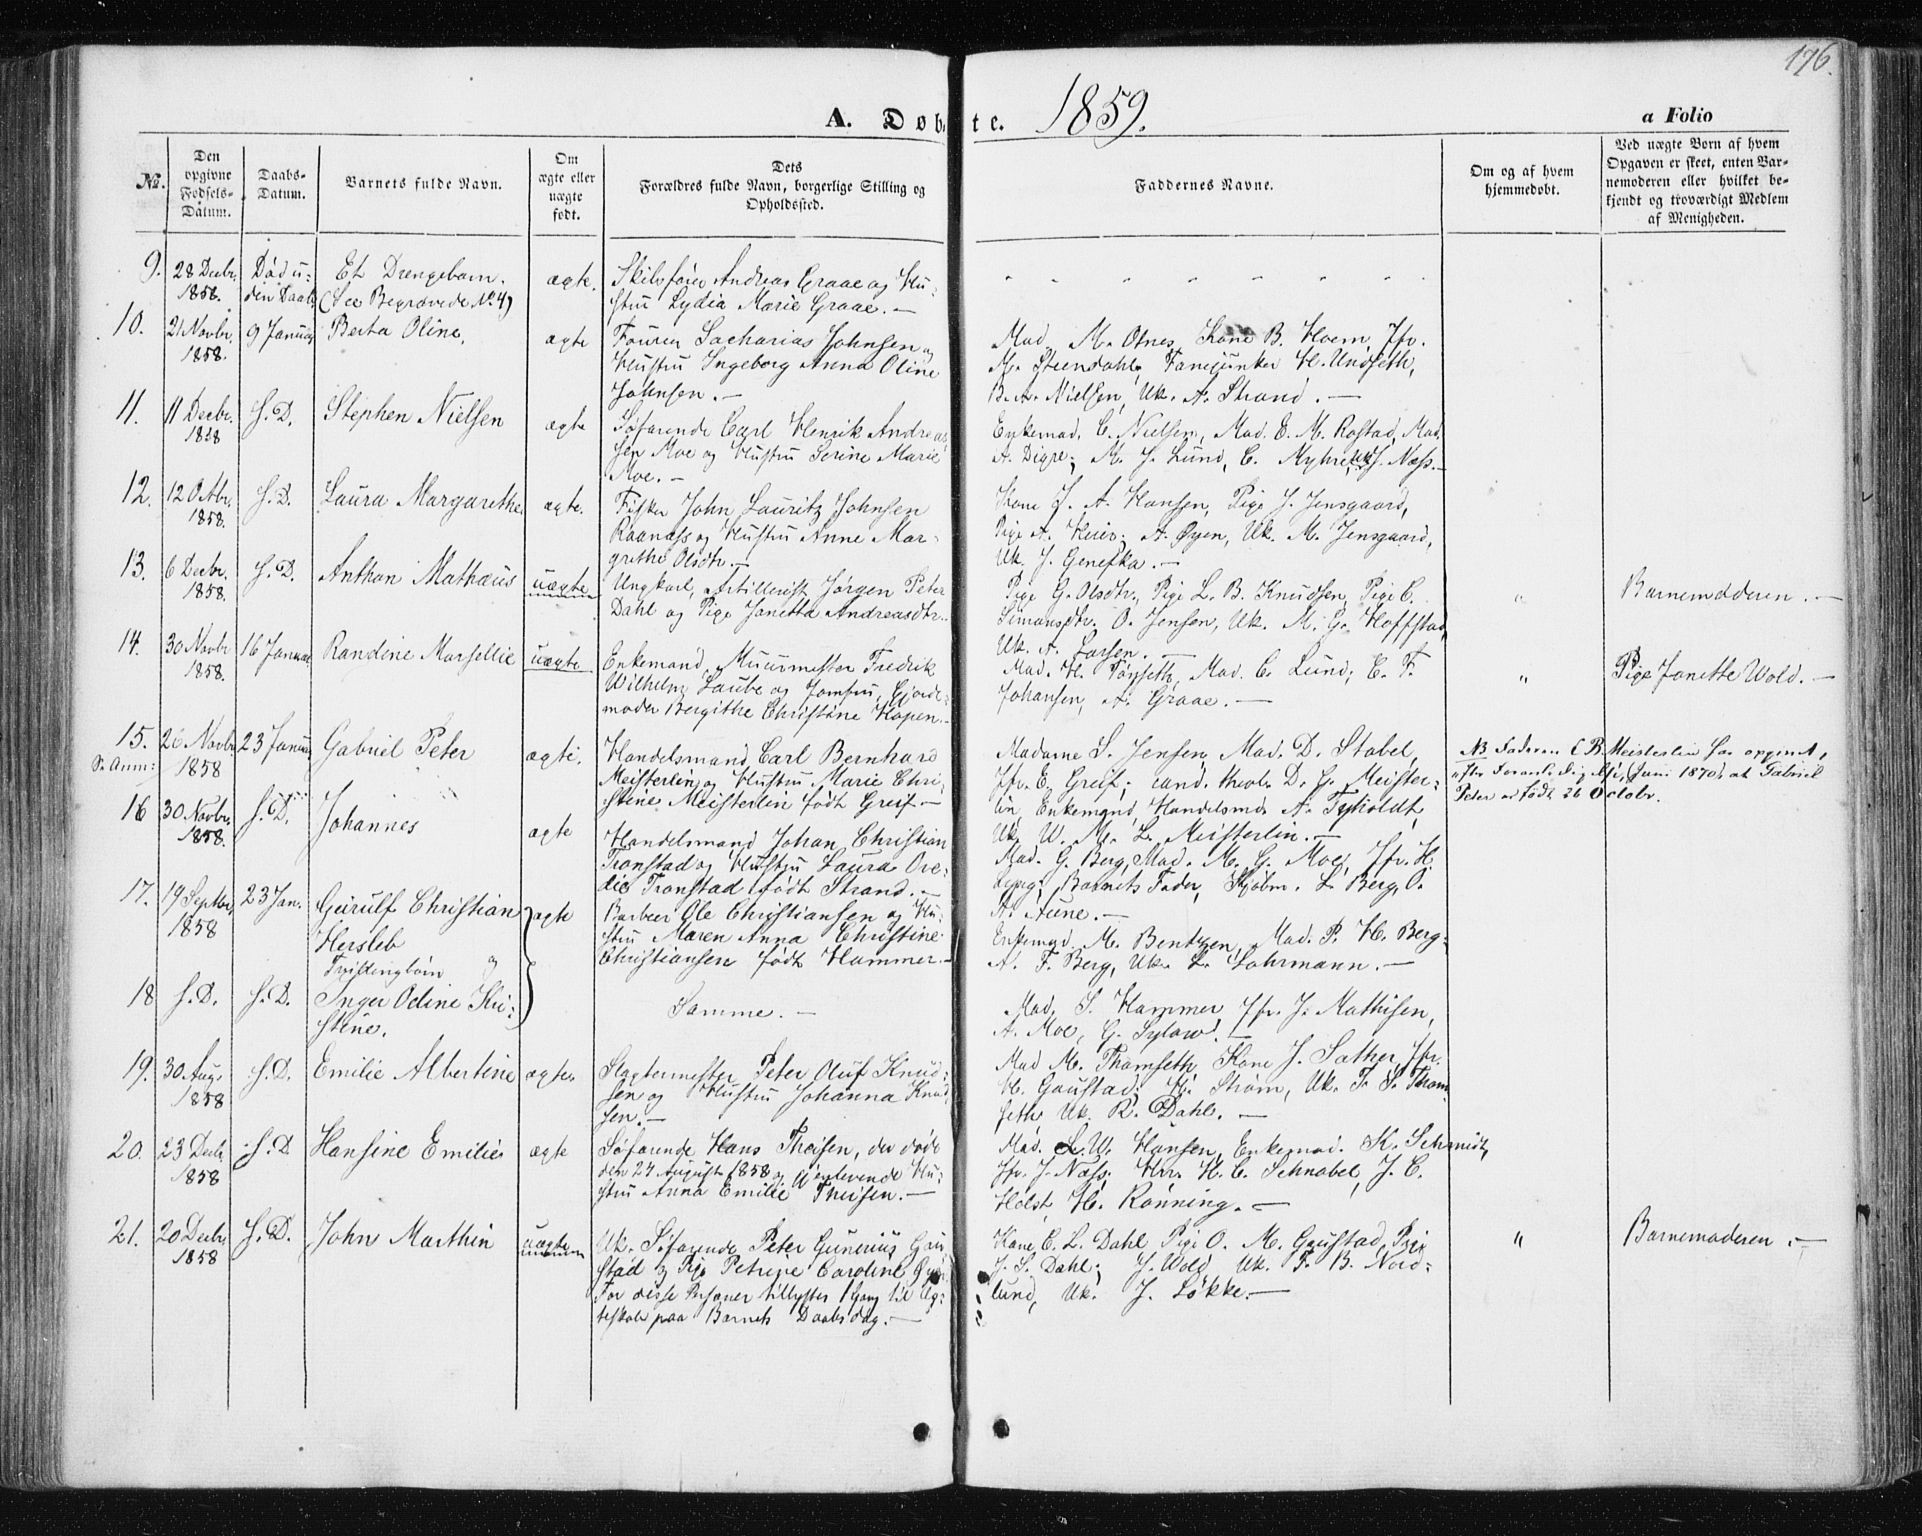 176.
A. Døbte. 1859. a Folio
No. | Den opgivne Fødsels-Datum. | Daabs-Datum. | Barnets fulde Navn. | Om ægte eller uægte født. | Dets Forældres fulde Navn, borgerlige Stilling og Opholdssted. | Faddernes Navne. | Om og af hvem hjemmedøbt. | Ved uægte Børn af hvem Opgaven er skeet, enten Barnemoderen eller hvilket bekjendt og troværdigt Medlem af Menigheden.
9. 28 Decbr. Død u- Et Drengebarn. ægte. Skibsfører Andreas Graae og Hu-
1858. den Daab (See Begravede No. 4) stru Lydia Marie Graae. —
10. 21 Novbr. 9 Januar Berta Oline. ægte Fourer Zacharias Johnsen og
1858. Hustru Ingeborg Anna Oline
Johnsen. —
Mad. M. Otnes, Kone B. Hoem, Jfr.
M. Steendahl, Fanejunker H. Undseth,
B. A. Nielsen, Uk. A. Strand. —
11. 11 Decbr. S. D. Stephen Nielsen ægte Søfarende Carl Henrik Andreas-
1858 sen Moe og Hustru Serine Marie
Moe. —
Enkemad. C. Nielsen, Mad. E. M. Rostad, Mad.
A. Digre; M. J. Lund, C. Myhre, Uk. J. Næss. —
12. 12 Octbr. S. D. Laura Margarethe ægte. Fisker John Lauritz Johnsen
1858. Raanæss og Hustru Anne Mar-
grethe Olsdtr. —
Kone L. A. Hansen, Pige J. Jensgaard,
Pige A. Heier; A. Øyen, Uk. M. Jensgaard,
Uk. J. Genefka. —
13. 6 Decbr. S. D. Anthon Mathæus uægte Ungkarl, Artillerist Jørgen Peter
1858. Dahl og Pige Janetta Andreasdtr.
Pige G. Olsdtr., Pige L. B. Knudsen, Pige C.
Simonsdtr. O. Jensen, Uk. M. G. Hoffstad,
Uk. A. Larsen. —
" Barnemoderen. —
14. 30 Novbr. 16 Januar Randine Marsellie uægte Enkemand, Muurmester Fredrik
1858. Wilhelm Laube og Jomfru, Gjorde-
moder Bergithe Christine Hopen. —
Mad. H. Tønseth, Mad. C. Lund; E. F.
Johansen, A. Graae. —
" Pige Janette Wold. —
15. 26 Novbr. 23 Januar Gabriel Peter ægte. Handelsmand Carl Bernhard
S. Anm: 1858 Meisterlin og Hustru Marie Chri-
stine Meisterlin født Greif. —
Madame S. Jensen, Mad. D. Stabel,
Jfr. E. Greif; cand. theol. D. G. Meister-
lin, Enkemand, Handelsmd. A. Tyholdt,
Uk. W. M. L. Meisterlin. —
NB Faderen C B. Meisterlin har opgivet,
efter Foranledigelse, (Juni 1870), at Gabriel
Peter er født 26 October.
16 30 Novbr. S. D. Johannes ægte Handelsmand Johan Christian
1858. Tronstad og Hustru Laura Ove-
die Tronstad født Strand. —
Mad. G. Berg, Mad. M. G. Moe, Jfr. H.
Lyng; Barnets Fader, Kjøbm. L. Berg, O.
A. Aune. —
17. 19 Septbr. 23 Jan. Geirulf Christian ægte Barbeer Ole Christiansen og Hu-
1858 Hersleb stru Maren Anna Christine
Tvillingbørn og Christiansen født Hammer. —
Enkemad. M. Bentzen, Mad. P. H. Berg;
A. F. Berg, Uk. L. Lohrmann. —
18 S. D. S. D. Inger Odine Kri- Samme. —
stine.
Mad. S. Hammer, Jfr. J. Mathisen,
A. Moe, G. Sylow. —
19. 30 Aug. S. D. Emilie Albertine ægte. Slagtermester Peter Oluf Knud-
1858 sen og Hustru Johanna Knud-
sen. —
Mad M. Thomseth, Kone J. Sæther, Jfr.
H. Gaustad; H. Strøm, Uk. F. S. Thom-
seth, Uk. R. Dahl. —
20. 23 Decbr. S. D Hansine Emilie ægte Søfarende Hans Theisen, der døde
1858 den 24 August 1858 og Gjenlevende Hu-
stru Anna Emilie Theisen. —
Mad. L. W. Hansen, Enkemad. K. Schmidt,
Jfr. J. Næss; Hrr. H. C. Schnabel, J. C.
Holst, H. Rønning. —
21. 20 Decbr. S. D. John Marthin uægte Uk. Søfarende Peter Gunerius Gau-
1858 stad og Pige Petrine Caroline
For disse Personer tillystes 1 Gang til Æg-
teskab paa Barnets Daabsdag. —
Kone C. L. Dahl, Pige O. M. Gaustad, Pige
J. S. Dahl; J. Wold, Uk. F. B. Nord-
lund, Uk. J. Løkke. —
" Barnemoderen. —